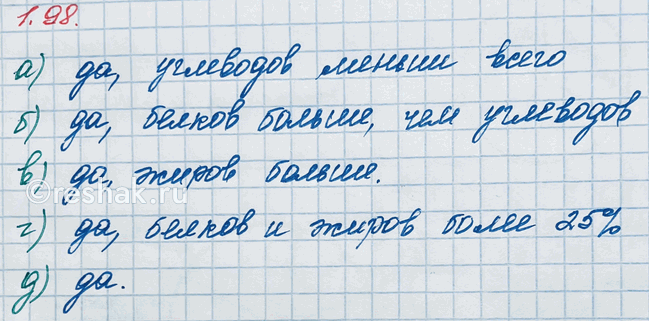 1.98.
а) да, углеводов меньше всего
б) да, белков больше, чем углеводов
в) да, жиров больше.
reshak.ru
г) да, белков и жиров более 25%
д) да.